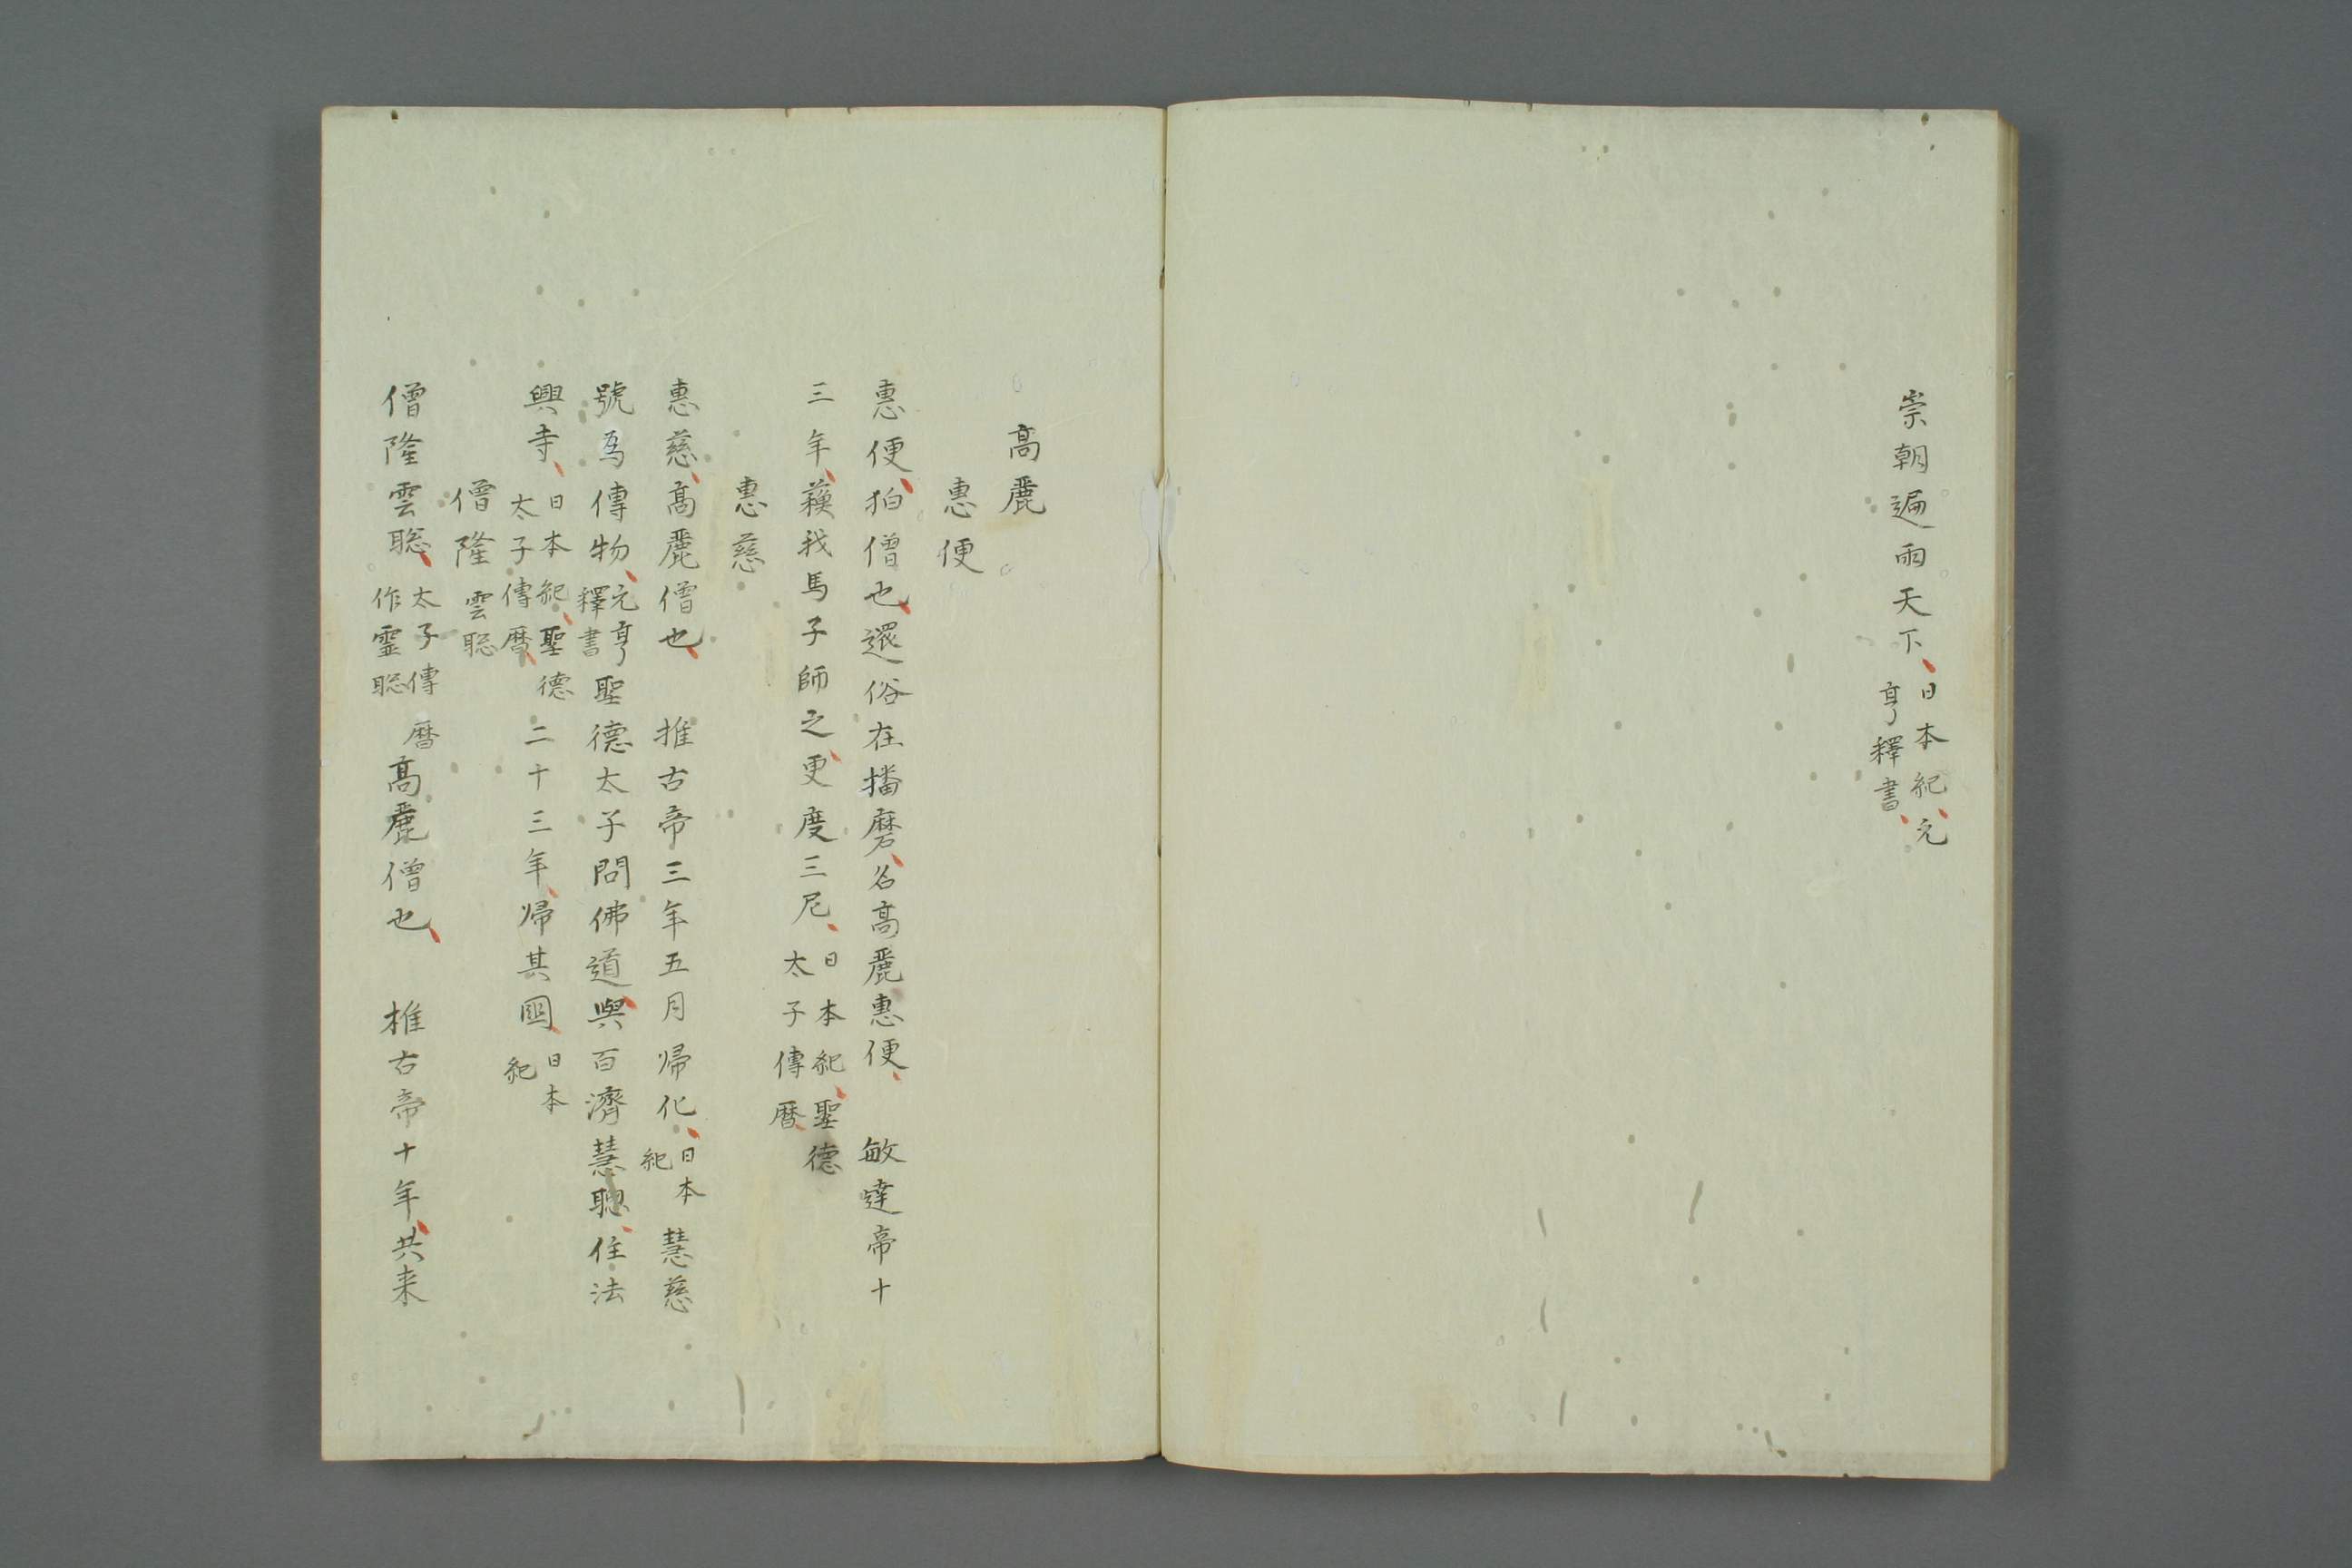 崇朝遍雨天下、日本紀、元亨釋書、
高麗
惠便
惠便、狛僧也、還俗在播磨、名高麗惠便、 敏達帝十
三年、蘓我馬子師之、更度三尼、日本紀、聖德太子傳曆、
惠慈
惠慈、高麗僧也、 推古帝三年五月帰化、日本紀 慧慈
號為傳物、元亨釋書 聖德太子問佛道、與百濟慧聰、住法
興寺、日本紀、聖德太子傳曆、二十三年、帰其國、日本紀
僧隆雲聡
僧隆雲聡、太子傳曆作霊聡 高麗僧也、 推古帝十年、共来